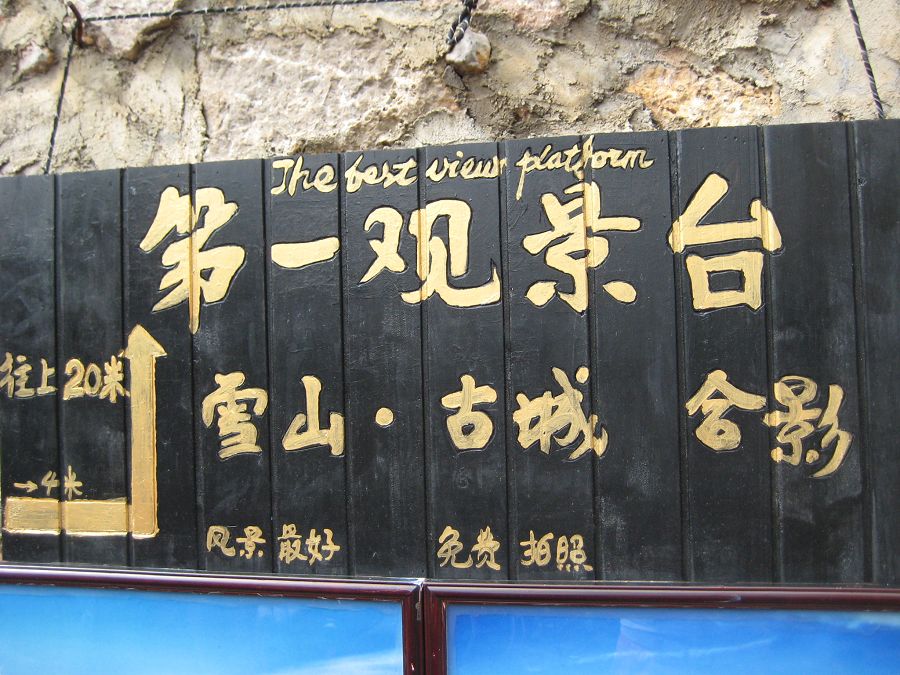 The best view platform
第一观景台
往上20米
雪山·古城 合影
→4米
风景最好 免费拍照